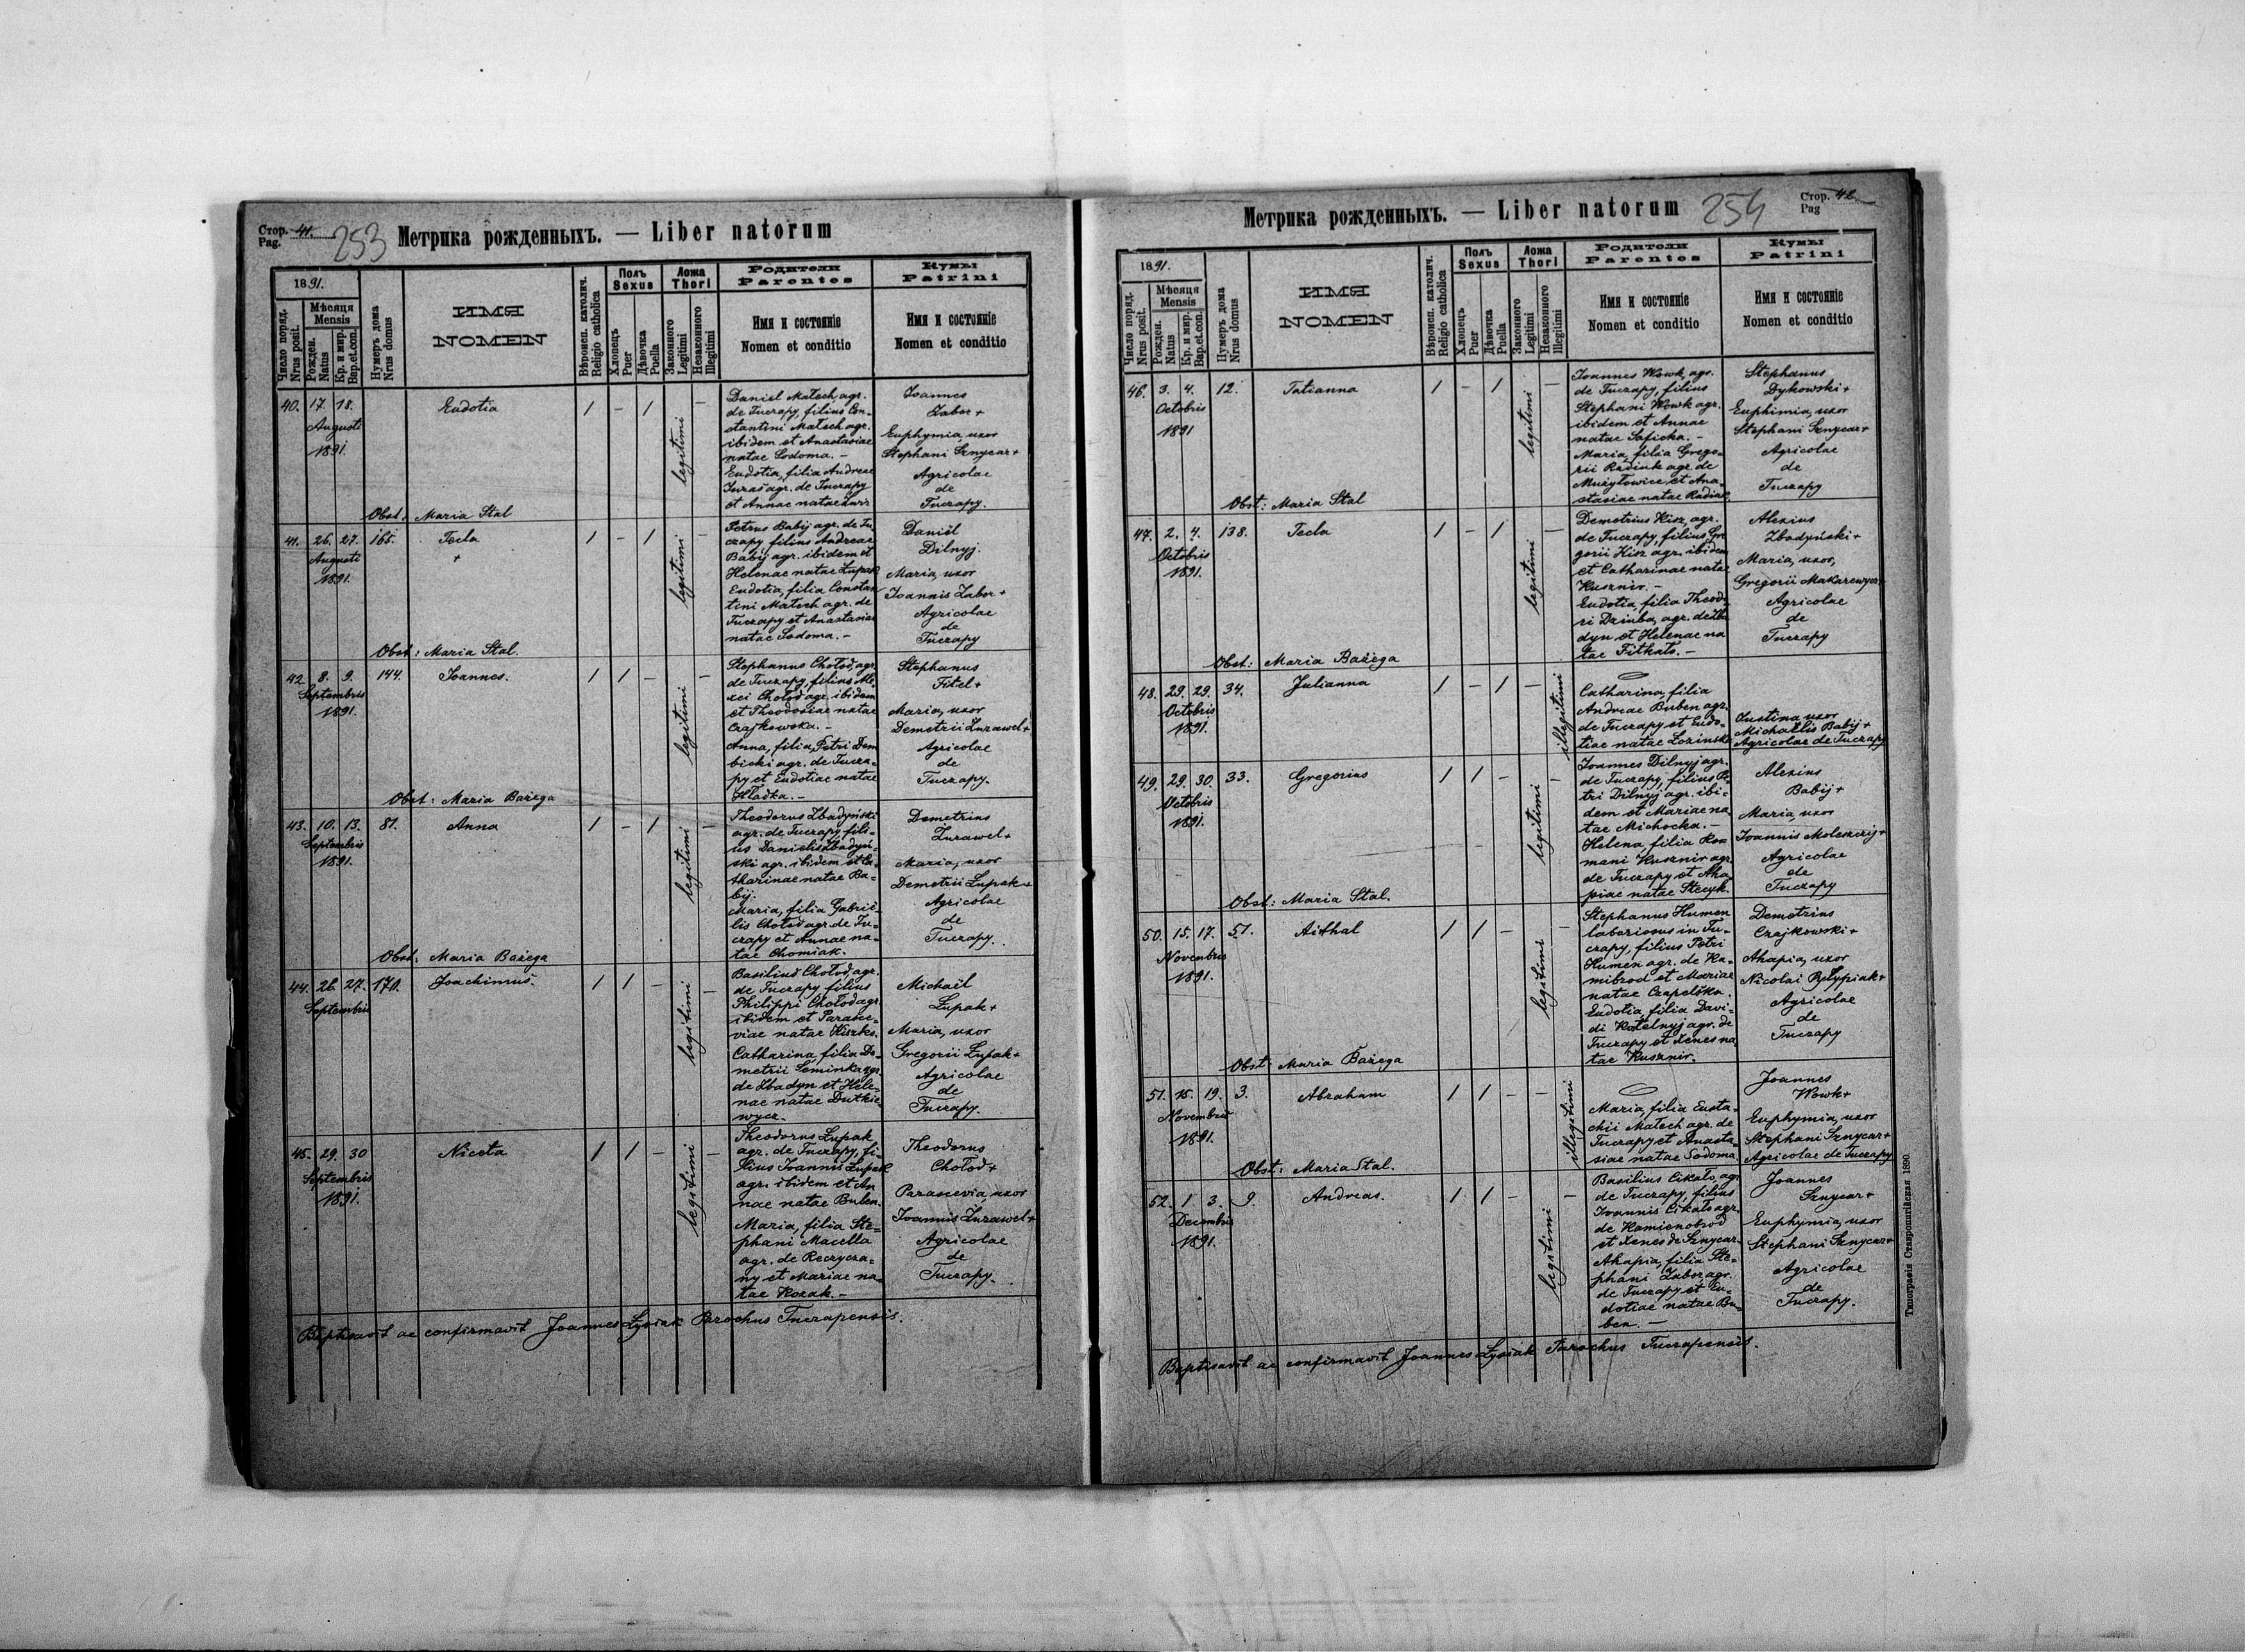 Стор. 41.
Pag.
253
Метрика рожденныхъ. — Liber natorum
1891.
Число поряд.
Nrus posit.
Мѣсяця
Mensis
Рожден.
Natus
Кр. и мир.
Bap.et.con.
Нумеръ дома
Nrus domus
ИМЯ
NOMEN
Вѣронсп. католич.
Religio catholica
Полъ
Sexus
Хлопецъ
Puer
Дѣвочка
Puella
Ложа
Thori
Законного
Legitimi
Незаконного
Illegitimi
Родители
Parentes
Имя и состояніе
Nomen et conditio
Кумы
Patrini
Имя и состояніе
Nomen et conditio
40. 17. 18.
Augusti
1891.
Eudotia
/ - / legitimi -
Daniel Matech agr.
de Tuczapy, filius Con-
stantini Matech agr.
ibidem et Anastasiae
natae Sodoma. -
Eudotia, filia Andreae
agr. de Tuczapy
et Annae natae
Joannes
Zabor +
Euphymia, uxor
Stephani Sznycar +
Agricolae
de
Tuczapy.
Obst: Maria Stal
41. 26. 27. 165.
Augusti
1891.
Tecla
+
/ - / legitimi -
Petrus Babij agr. de Tu-
czapy filius Andreae
Babij agr. ibidem et
Helenae natae Łupak
Eudotia, filia Constan
tini Matech agr. de
Tuczapy et Anastasiae
natae Sodoma. -
Daniel
Dilnyj.
Maria, uxor
Joannis Zabor +
Agricolae
de
Tuczapy
Obst: Maria Stal.
42. 8. 9. 144.
Septembris
1891.
Joannes.
/ / - legitimi -
Stephanus Chołod, agr.
de Tuczapy, filius Ale-
xei Chołod agr. ibidem
et Theodosiae natae
Czajkowska. -
Anna, filia Petri Dem
bicki agr. de Tucza-
py et Eudotiae natae
Hładka. -
Stephanus
Fitel +
Maria, uxor
Demetrii Zurawel +
Agricolae
de
Tuczapy.
Obst: Maria Bażega
43. 10. 13. 81.
Septembris
1891.
Anna
/ - / legitimi -
Theodorus Zbadyński
agr. de Tuczapy, fili-
us Danielis Zbadyń-
ski agr. ibidem et Ca-
tharinae natae Ba-
bij.
Maria, filia Gabrie-
lis Chołod agr. de Tu-
czapy et Annae na-
tae Chomiak.
Demetrius
Zurawel +
Maria, uxor
Demetrii Łupak +
Agricolae
de
Tuczapy.
Obst: Maria Bażega
44. 26. 27. 170.
Septembris
Joachimus.
/ / - legitimi -
Basilius Chołod, agr.
de Tuczapy filius
Philippi Chołod agr.
ibidem et Parasce-
viae natae Kiszka.
Catharina, filia De-
metrii Seminka agr.
de Zbadyn et Hele-
nae natae Dutkie-
wycz.
Michail
Łupak +
Maria, uxor
Gregorii Łupak +
Agricolae
de
Tuczapy.
45. 29. 30
Septembris
1891.
Niceta
/ / - legitimi -
Theodorus Łupak
agr. de Tuczapy, fi-
lius Joannis Łupak
agr. ibidem et An
nae natae Buben.
Maria, filia Ste-
phani Macella
agr. de Reczycza-
ny et Mariae na-
tae Kozak. -
Theodorus
Chołod +
Parascevia, uxor
Joannis Zurawel +
Agricolae
de
Tuczapy.
Baptisavit ac confirmavit Joannes Łysiak Parochus Tuczapensis.
Метрика рожденныхъ. — Liber natorum
254
Стор. 42
Pag
1891.
Число поряд.
Nrus posit.
Мѣсяця
Mensis
Рожден.
Natus
Кр. и мир.
Bap.et.con.
Нумеръ дома
Nrus domus
ИМЯ
NOMEN
Вѣронсп. католич.
Religio catholica
Полъ
Sexus
Хлопецъ
Puer
Дѣвочка
Puella
Ложа
Thori
Законного
Legitimi
Незаконного
Illegitimi
Родители
Parentes
Имя и состояніе
Nomen et conditio
Кумы
Patrini
Имя и состояніе
Nomen et conditio
46. 3. 4. 12.
Octobris
1891
Tatianna
/ - / legitimi -
Joannes Wowk, agr.
de Tuczapy, filius
Stephani Wowk agr.
ibidem et Annae
natae Saficka. -
Maria, filia Grego-
rii Radiuk agr. de
Mużyłowice, et Ana-
stasiae natae Radiak
Stephanus
Dykowski +
Euphimia, uxor
Stephani Sznycar +
Agricolae
de
Tuczapy
Obst: Maria Stal
47. 2. 4. 138.
Octobris
1891.
Tecla
/ - / legitimi -
Demetrius Kisz, agr.
de Tuczapy, filius Gre
gorii Kisz agr. ibidem
et Catharinae natae
Kusznir. -
Eudotia, filia Theodo
ri Dziuba, agr. de Zba
dyn et Helenae na
tae Fitkało. -
Alexius
Zbadyński +
Maria, uxor,
Gregorii Makarewycz +
Agricolae
de
Tuczapy
Obst: Maria Bażega
48. 29. 29. 34.
Octobris
1891.
Julianna
/ - / - illegitimi
Catharina, filia
Andreae Buben agr.
de Tuczapy et Eudo-
tiae natae Łozinska
Justina uxor
Michaëlis Babij +
Agricolae de Tuczapy
49. 29. 30. 33.
Octobris
1891.
Gregorius
/ / - legitimi -
Joannes Dilnyj agr.
de Tuczapy, filius Pe-
tri Dilnyj agr. ibi-
dem et Mariae na-
tae Michocka. -
Helena, filia Ro-
mani Kusznir agr.
de Tuczapy et Aha-
piae natae Stecyk.
Alexius
Babij +
Maria, uxor
Joannis Moleszczij +
Agricolae
de
Tuczapy
Obst: Maria Stal.
50. 15. 17. 57.
Novembris
1891.
Aithal
/ / - legitimi -
Stephanus Humen
laboriosus in Tu-
czapy, filius Petri
Humen agr. de Ka-
mibrod et Mariae
natae Czapelska.
Eudotia, filia Davi-
di Kotelnyj agr. de
Tuczapy et Xenes na
tae Kusznir.
Demetrius
Czajkowski +
Ahapia, uxor
Nicolai Pyłypiak +
Agricolae
de
Tuczapy
Obst: Maria Bażega
51. 15. 19. 3.
Novembris
1891.
Abraham
/ / - - illegitimi
Maria, filia Eusta-
chii Matech agr. de
Tuczapy et Anasta-
siae natae Sodoma.
Joannes
Wowk +
Euphymia, uxor
Stephani Sznycar +
Agricolae de Tuczapy
Obst: Maria Stal.
52. 1 3. 9.
Decembris
1891.
Andreas.
/ / - legitimi -
Basilius Cikało, agr
de Tuczapy, filius
Joannis Cikało agr.
de Kamienobrod
et Xenes de Sznycar.
Ahapia, filia Ste-
phani Zabor, agr.
de Tuczapy et Eu-
dotiae natae Bu-
ben. -
Joannes
Sznycar +
Euphymia, uxor
Stephani Sznycar +
Agricolae
de
Tuczapy.
Baptisavit ac confirmavit Joannes Łysiak Parochus Tuczapensis.
Типографія Ставропигійская 1890.